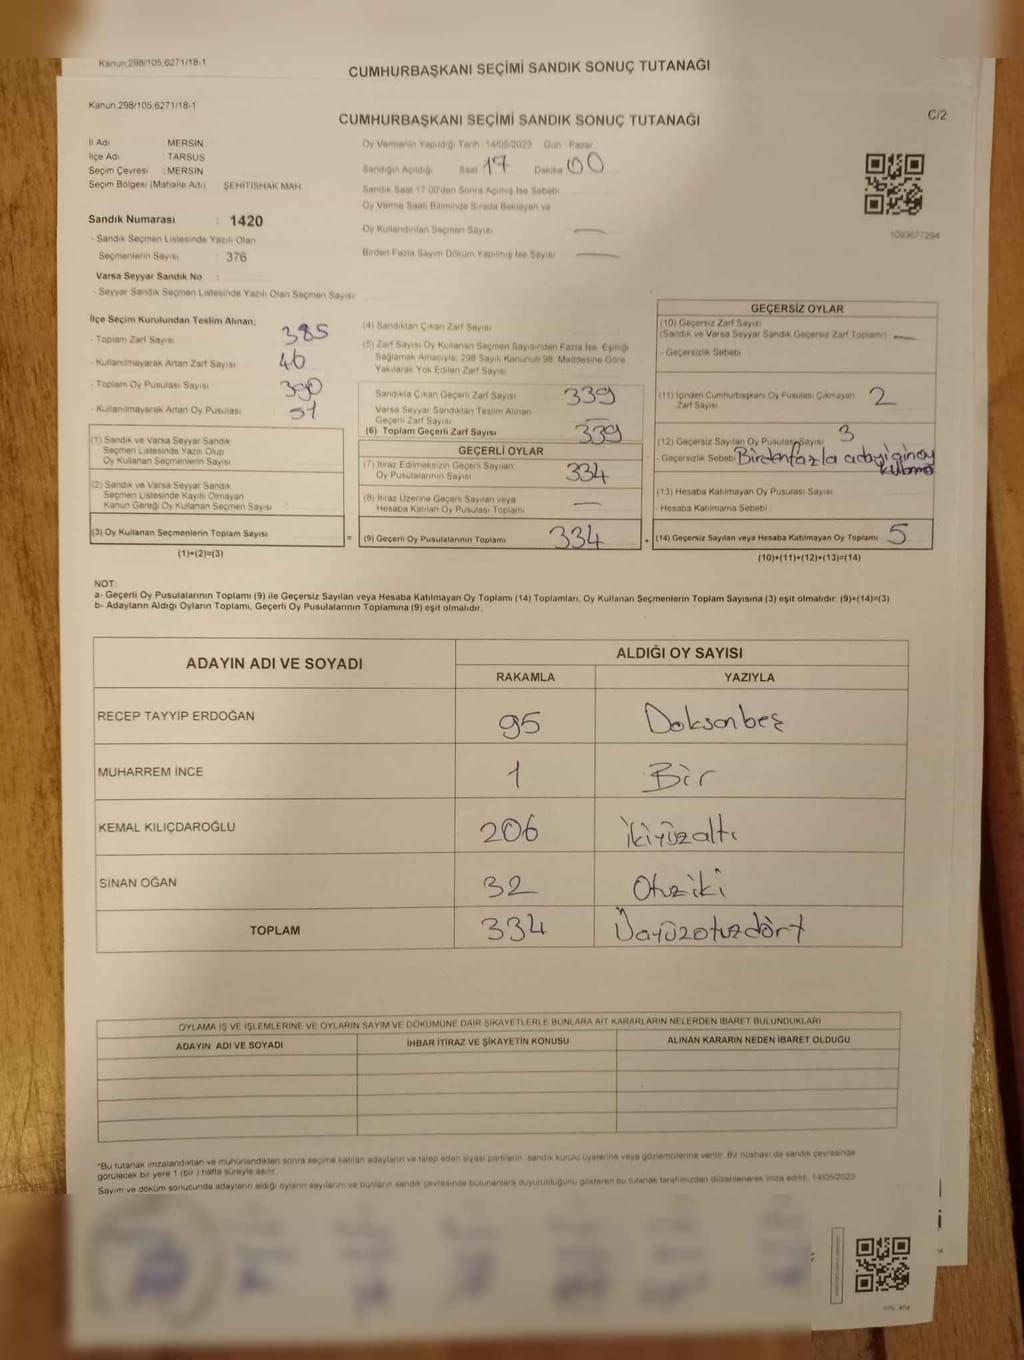 Kanun 298/105,6271/18-1
CUMHURBAŞKANI SEÇİMİ SANDIK SONUÇ TUTANAĞI
Kanun 298/105,6271/18-1
CUMHURBAŞKANI SEÇİMİ SANDIK SONUÇ TUTANAĞI
C/2
İl Adı MERSİN
İlçe Adı TARSUS
Seçim Çevresi : MERSİN
Seçim Bölgesi (Mahalle Adı) ŞEHİTİSHAK MAH.
Sandık Numarası : 1420
- Sandık Seçmen Listesinde Yazılı Olan
Seçmenlerin Sayısı : 376
Varsa Seyyar Sandık No :
- Seyyar Sandık Seçmen Listesinde Yazılı Olan Seçmen Sayısı
Oy Vermenin Yapıldığı Tarih 14/05/2023 Gün Pazar
Sandığın Açıldığı Saat 17 Dakika 00
Sandık Saat 17:00'den Sonra Açılmış İse Sebebi
Oy Verme Saati Bitiminde Sırada Bekleyen ve
Oy Kullandırılan Seçmen Sayısı —
Birden Fazla Sayım Döküm Yapılmış İse Sayısı —
1093677294
İlçe Seçim Kurulundan Teslim Alınan;
- Toplam Zarf Sayısı 385
- Kullanılmayarak Artan Zarf Sayısı 46
- Toplam Oy Pusulası Sayısı 390
- Kullanılmayarak Artan Oy Pusulası 51
(1) Sandık ve Varsa Seyyar Sandık
Seçmen Listesinde Yazılı Olup
Oy Kullanan Seçmenlerin Sayısı
(2) Sandık ve Varsa Seyyar Sandık
Seçmen Listesinde Kayıtlı Olmayan
Kanun Gereği Oy Kullanan Seçmen Sayısı
(3) Oy Kullanan Seçmenlerin Toplam Sayısı
(1)+(2)=(3)
(4) Sandıktan Çıkan Zarf Sayısı
(5) Zarf Sayısı Oy Kullanan Seçmen Sayısından Fazla İse, Eşitliği
Sağlamak Amacıyla, 298 Sayılı Kanunun 98. Maddesine Göre
Yakılarak Yok Edilen Zarf Sayısı
Sandıkta Çıkan Geçerli Zarf Sayısı 339
Varsa Seyyar Sandıktan Teslim Alınan
Geçerli Zarf Sayısı —
(6) Toplam Geçerli Zarf Sayısı 339
GEÇERLİ OYLAR
(7) İtiraz Edilmeksizin Geçerli Sayılan
Oy Pusulalarının Sayısı 334
(8) İtiraz Üzerine Geçerli Sayılan veya
Hesaba Katılan Oy Pusulası Toplamı —
= (9) Geçerli Oy Pusulalarının Toplamı 334 +
GEÇERSİZ OYLAR
(10) Geçersiz Zarf Sayısı
(Sandık ve Varsa Seyyar Sandık Geçersiz Zarf Toplamı) —
- Geçersizlik Sebebi
(11) İçinden Cumhurbaşkanı Oy Pusulası Çıkmayan
Zarf Sayısı 2
(12) Geçersiz Sayılan Oy Pusulası Sayısı 3
- Geçersizlik Sebebi Birden fazla aday için oy
(13) Hesaba Katılmayan Oy Pusulası Sayısı
- Hesaba Katılmama Sebebi
(14) Geçersiz Sayılan veya Hesaba Katılmayan Oy Toplamı 5
(10)+(11)+(12)+(13)=(14)
NOT:
a- Geçerli Oy Pusulalarının Toplamı (9) ile Geçersiz Sayılan veya Hesaba Katılmayan Oy Toplamı (14) Toplamları, Oy Kullanan Seçmenlerin Toplam Sayısına (3) eşit olmalıdır. (9)+(14)=(3)
b- Adayların Aldığı Oyların Toplamı, Geçerli Oy Pusulalarının Toplamına (9) eşit olmalıdır.
ADAYIN ADI VE SOYADI ALDIĞI OY SAYISI
RAKAMLA YAZIYLA
RECEP TAYYİP ERDOĞAN 95 Doksanbeş
MUHARREM İNCE 1 Bir
KEMAL KILIÇDAROĞLU 206 ikiyüzaltı
SİNAN OĞAN 32 Otuziki
TOPLAM 334 Üçyüzotuzdört
OYLAMA İŞ VE İŞLEMLERİNE VE OYLARIN SAYIM VE DÖKÜMÜNE DAİR ŞİKAYETLERLE BUNLARA AİT KARARLARIN NELERDEN İBARET BULUNDUKLARI
ADAYIN ADI VE SOYADI İHBAR İTİRAZ VE ŞİKAYETİN KONUSU ALINAN KARARIN NEDEN İBARET OLDUĞU
*Bu tutanak imzalandıktan ve mühürlendikten sonra seçime katılan adayların ve talep eden siyasi partilerin, sandık kurulu üyelerine veya gözlemcilerine verilir. Bir nüshası da sandık çevresinde
görülecek bir yere 1 (bir) hafta süreyle asılır.
Sayım ve döküm sonucunda adayların aldığı oyların sayılarını ve bunların sandık çevresinde bulunanlara duyurulduğunu gösteren bu tutanak tarafımızdan düzenlenerek imza edildi. 14/05/2023